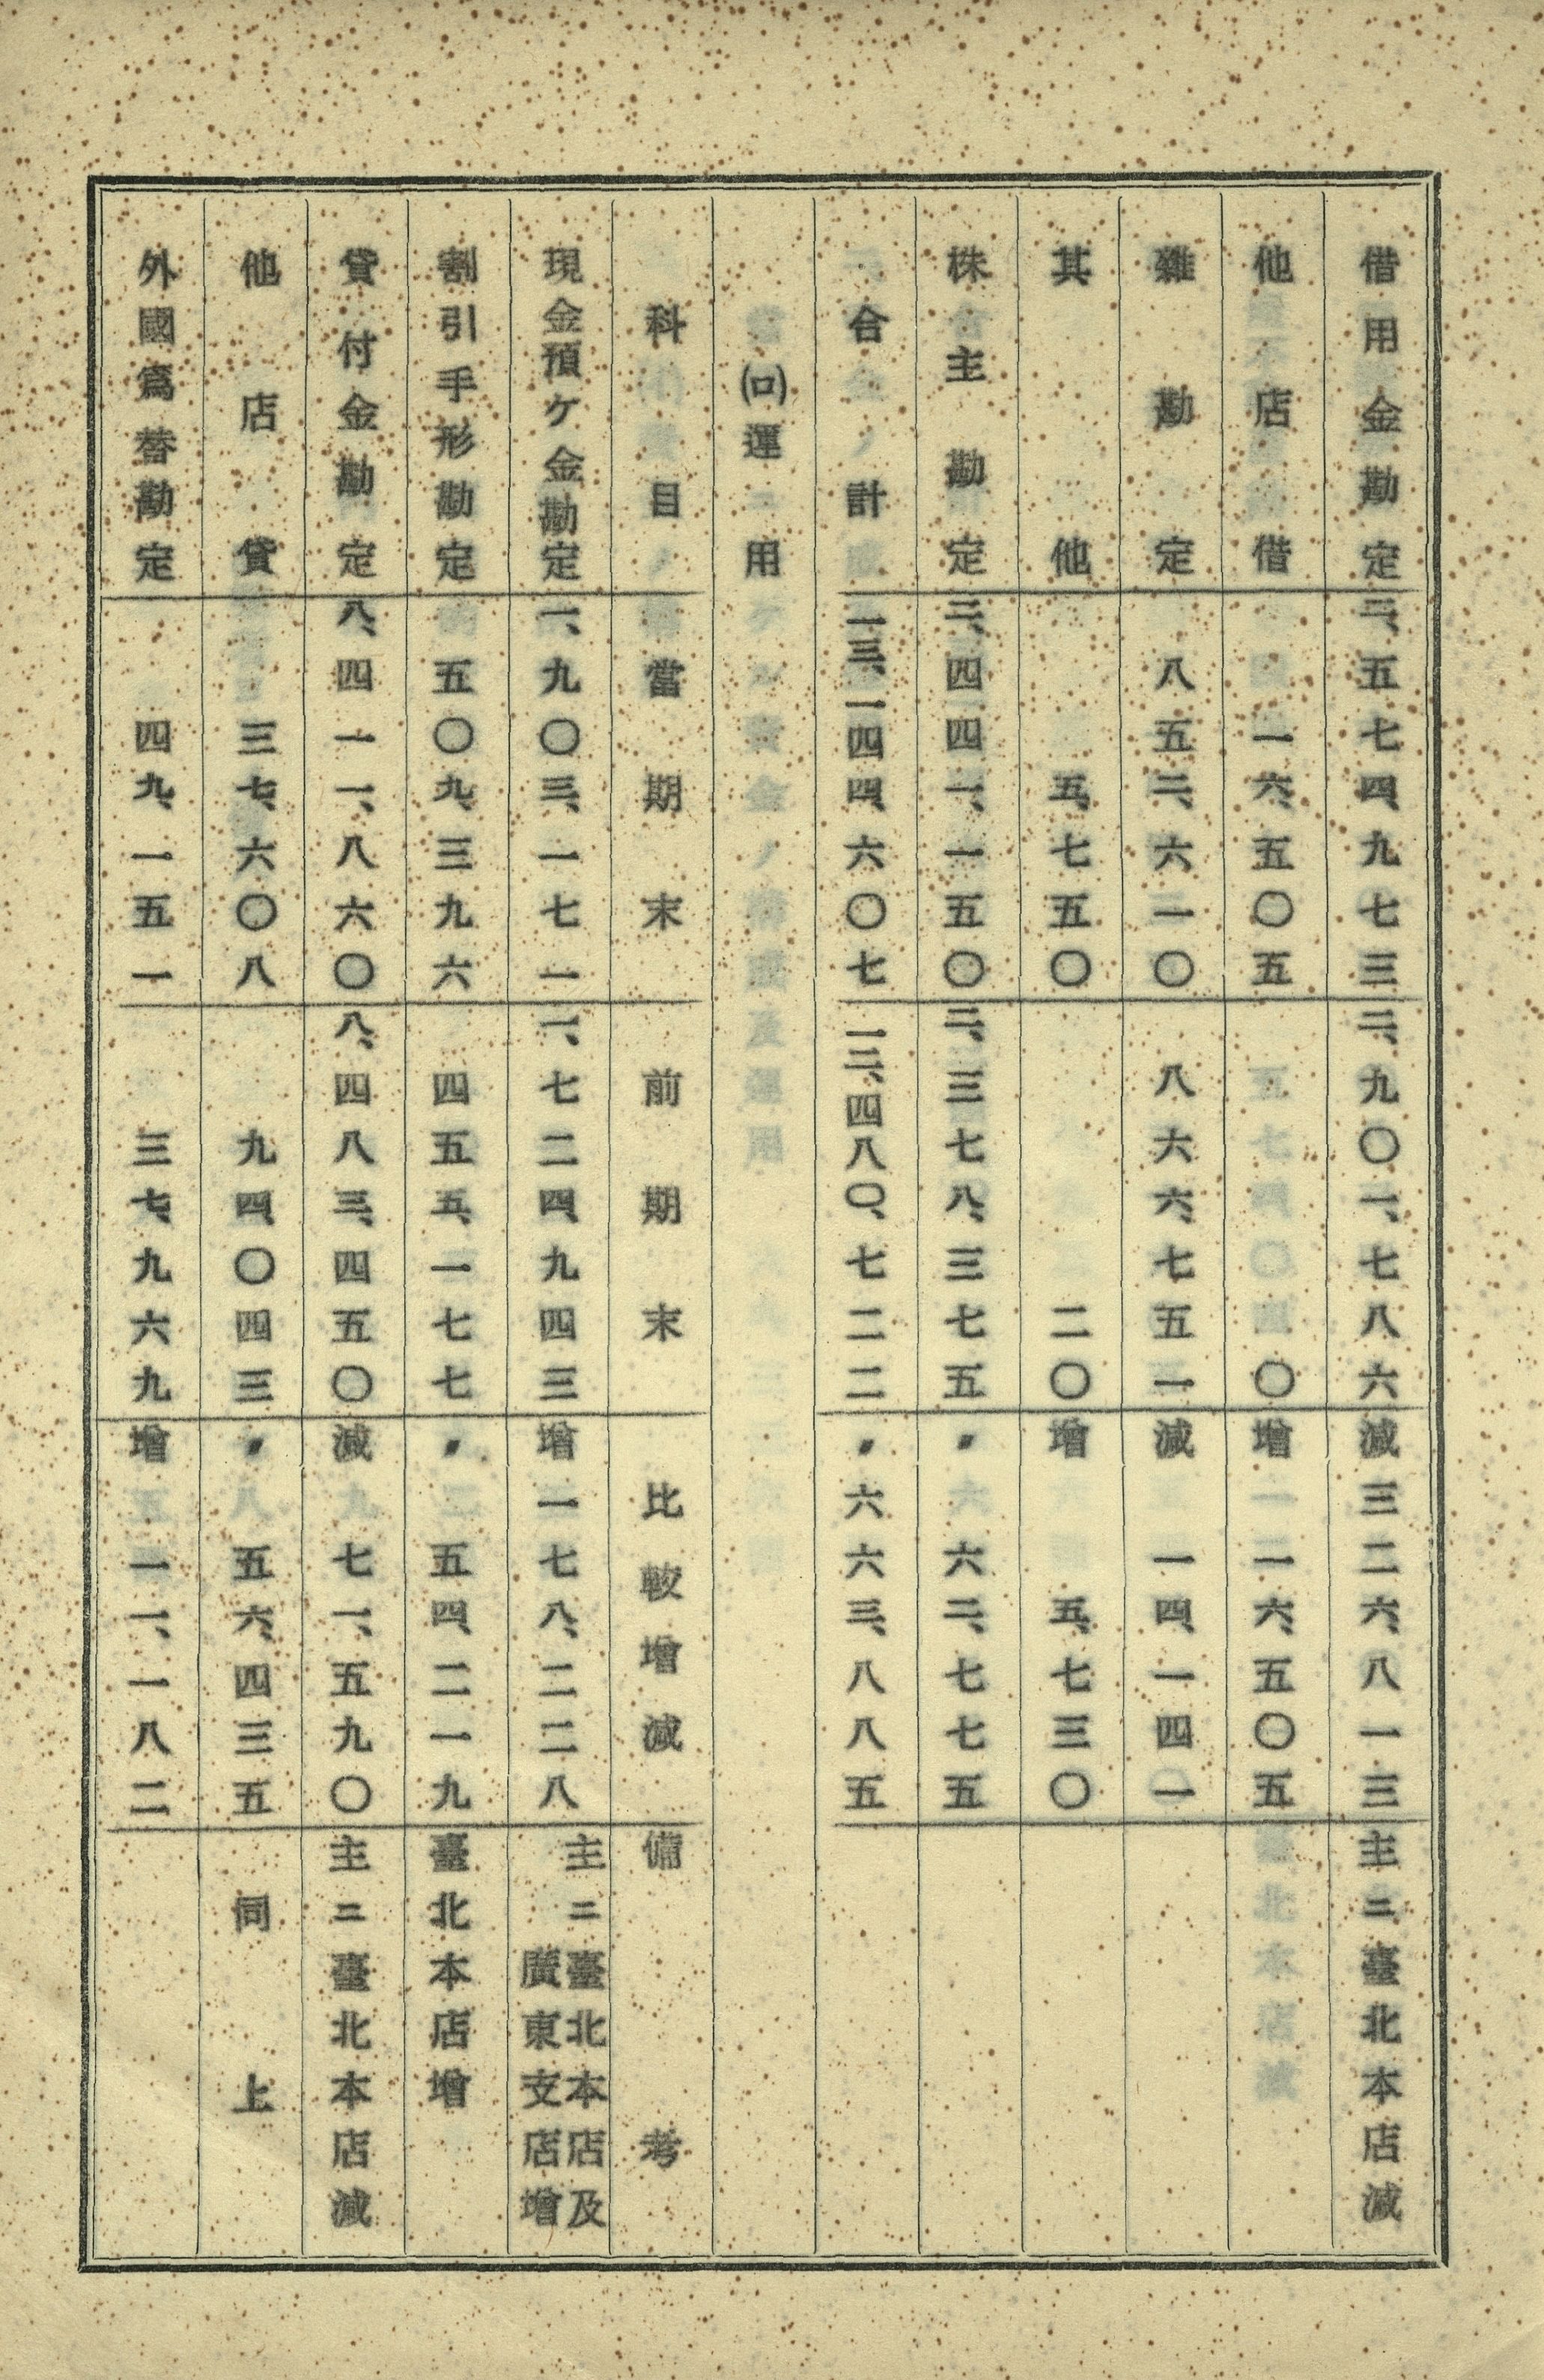 借用金勘定 二、五七四、九七三 二、九〇一、七八六 減三二六、八一三 主ニ臺北本店減
他店借 一六、五〇五 〇 增一六、五〇五
雜勘定 八五二、六一〇 八六六、七五一 減一四、一四一
其他 五、七五〇 二〇 增五、七三〇
株主勘定 二、四四一、一五〇 二、三七八、三七五 〃六二、七七五
合計 一三、一四四、六〇七 一二、四八〇、七二二 〃六六三、八八五
(ロ)運用
科目 當期末 前期末 比較增減 備考
現金預ケ金勘定 一、九〇三、一七一 一、七二四、九四三 增一七八、二二八 主ニ臺北本店及
廣東支店增
割引手形勘定 五〇九、三九六 四五五、一七七 〃五四、二一九 臺北本店增
貸付金勘定 八、四一一、八六〇 八、四八三、四五〇 減七一、五九〇 主ニ臺北本店減
他店貸 三七、六〇八 九四、〇四三 〃五六、四三五 同上
外國爲替勘定 四九、一五一 三七、九六九 增一一、一八二